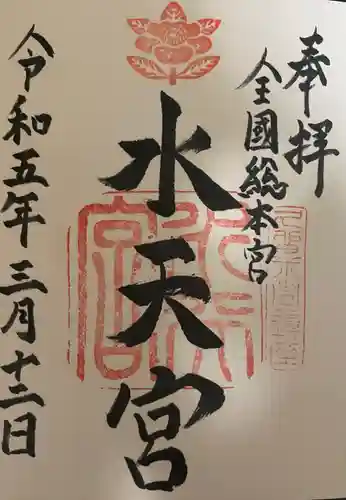 奉拝
全国総本宮
水天宮
令和五年三月十二日